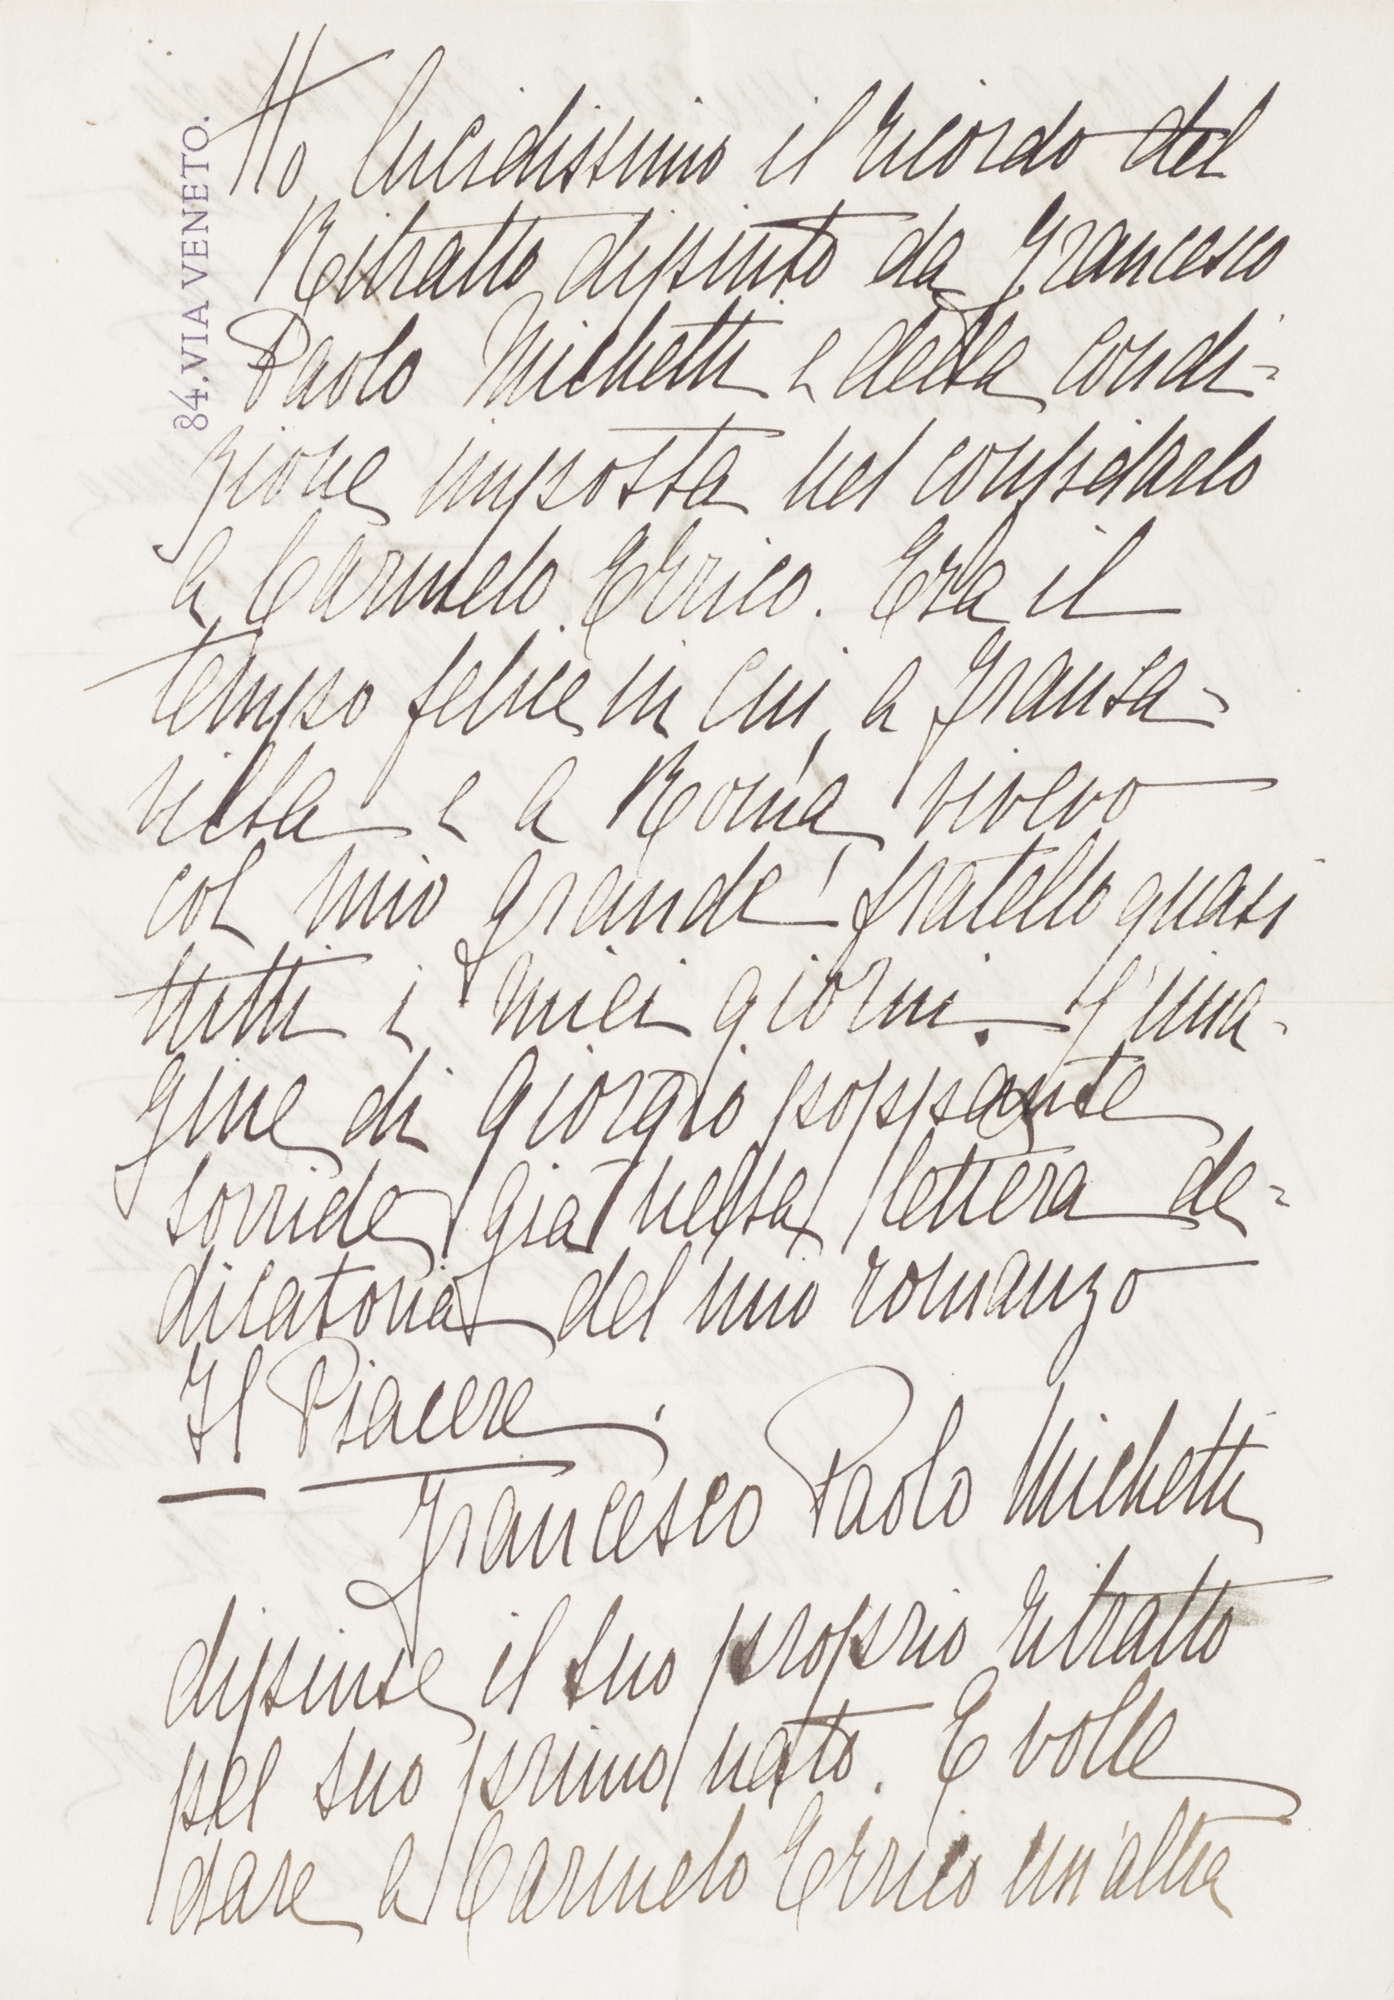 84. VIA VENETO.
Ho lucidissimo il ricordo del
Ritratto dipinto da Francesco
Paolo Michetti e della condi-
zione imposta nel confidarlo
a Carmelo Errico. Era il
tempo felice in cui, a Franca-
villa e a Roma, vivevo
col mio grande fratello quasi
tutti i miei giorni. L'ima-
gine di Giorgio poppante
sorride già nella lettera de-
dicatoria del mio romanzo
Il Piacere.
Francesco Paolo Michetti
dipinse il suo proprio ritratto
pel suo primo nato. E volle
dare a Carmelo Errico un'altra